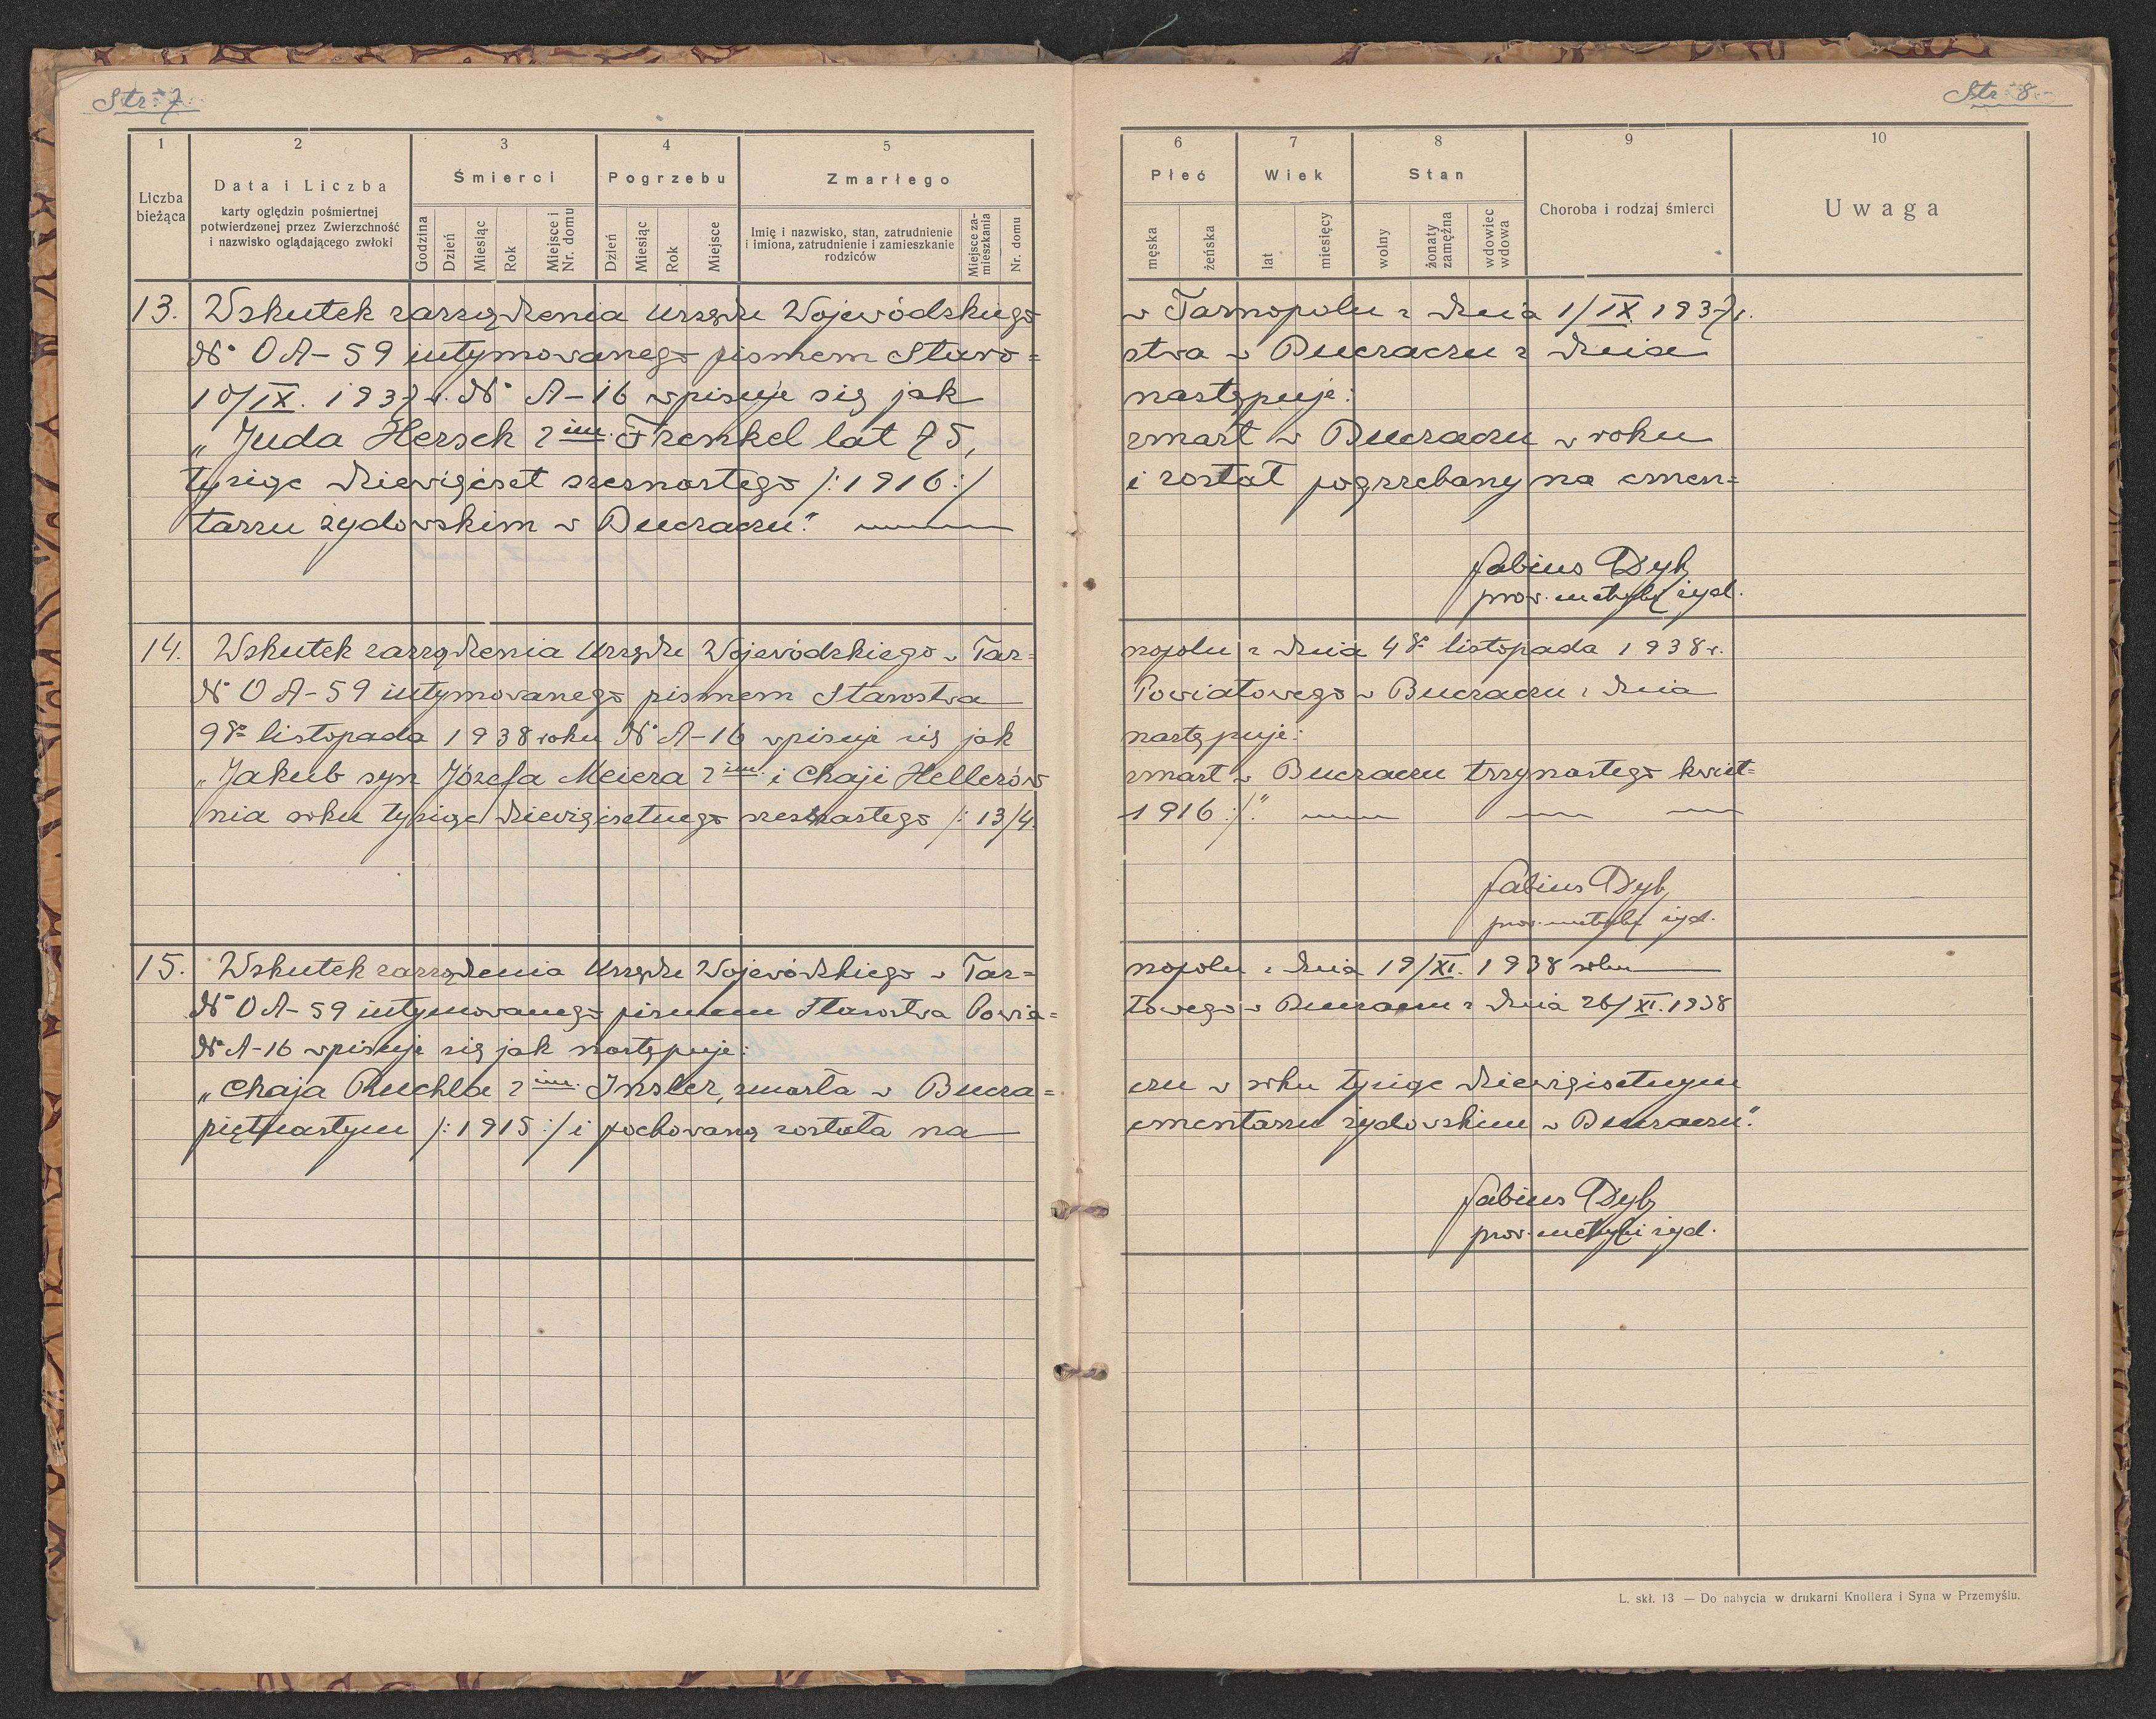 Str. 7
Str. 8
1 2 3 4 5
Liczba bieżąca
Data i Liczba
karty oględzin pośmiertnej
potwierdzonej przez Zwierzchność
i nazwisko oglądającego zwłoki
Śmierci
Godzina
Dzień
Miesiąc
Rok
Miejsce i Nr. domu
Pogrzebu
Dzień
Miesiąc
Rok
Miejsce
Zmarłego
Imię i nazwisko, stan, zatrudnienie
i imiona, zatrudnienie i zamieszkanie
rodziców
Miejsce zamieszkania
Nr. domu
6 7 8 9 10
Płeć
męska
żeńska
Wiek
lat
miesięcy
Stan
wolny
żonaty zamężna
wdowiec wdowa
Choroba i rodzaj śmierci
Uwaga
13. Wskutek zarządzenia Urzędu Wojewódzkiego w Tarnopolu z dnia 1/IX 1937r.
No OA-59 intymowanego pismem Staro= stwa w Buczaczu z dnia
10/IX. 1937 r. No A-16 wpisuje się jak następuje:
„Juda Hersch 2 im. Frenkel lat 75, zmarł w Buczaczu w roku
tysiąc dziewięćset szesnastego /:1916:/ i został pogrzebany na cmen=
tarzu żydowskim w Buczaczu."
Fabius Dyk
prow. metryki żyd.
14. Wskutek zarządzenia Urzędu Wojewódzkiego w Tar= nopolu z dnia 4go listopada 1938 r.
No OA-59 intymowanego pismem Starostwa Powiatowego w Buczaczu z dnia
9go listopada 1938 roku No A-16 wpisuje się jak następuje:
„Jakub syn Józefa Meiera 2 im. i Chaji Hellerów zmarł w Buczaczu trzynastego kwiet=
nia roku tysiąc dziewięćsetnego szesnastego /: 13/4. 1916 :/."
Fabius Dyk
prow. metryki żyd.
15. Wskutek zarządzenia Urzędu Wojewódzkiego w Tar= nopolu z dnia 19/XI. 1938 roku
No OA-59 intymowanego pismem Starostwa Powia= towego w Buczaczu z dnia 26/XI. 1938
No A-16 wpisuje się jak następuje:
„Chaja Ruchla 2 im. Insler, zmarła w Bucza= czu w roku tysiąc dziewięćsetnym
piętnastym /:1915:/ i pochowaną została na cmentarzu żydowskim w Buczaczu."
Fabius Dyk
prow. metryki żyd.
L. skł. 13 — Do nabycia w drukarni Knollera i Syna w Przemyślu.